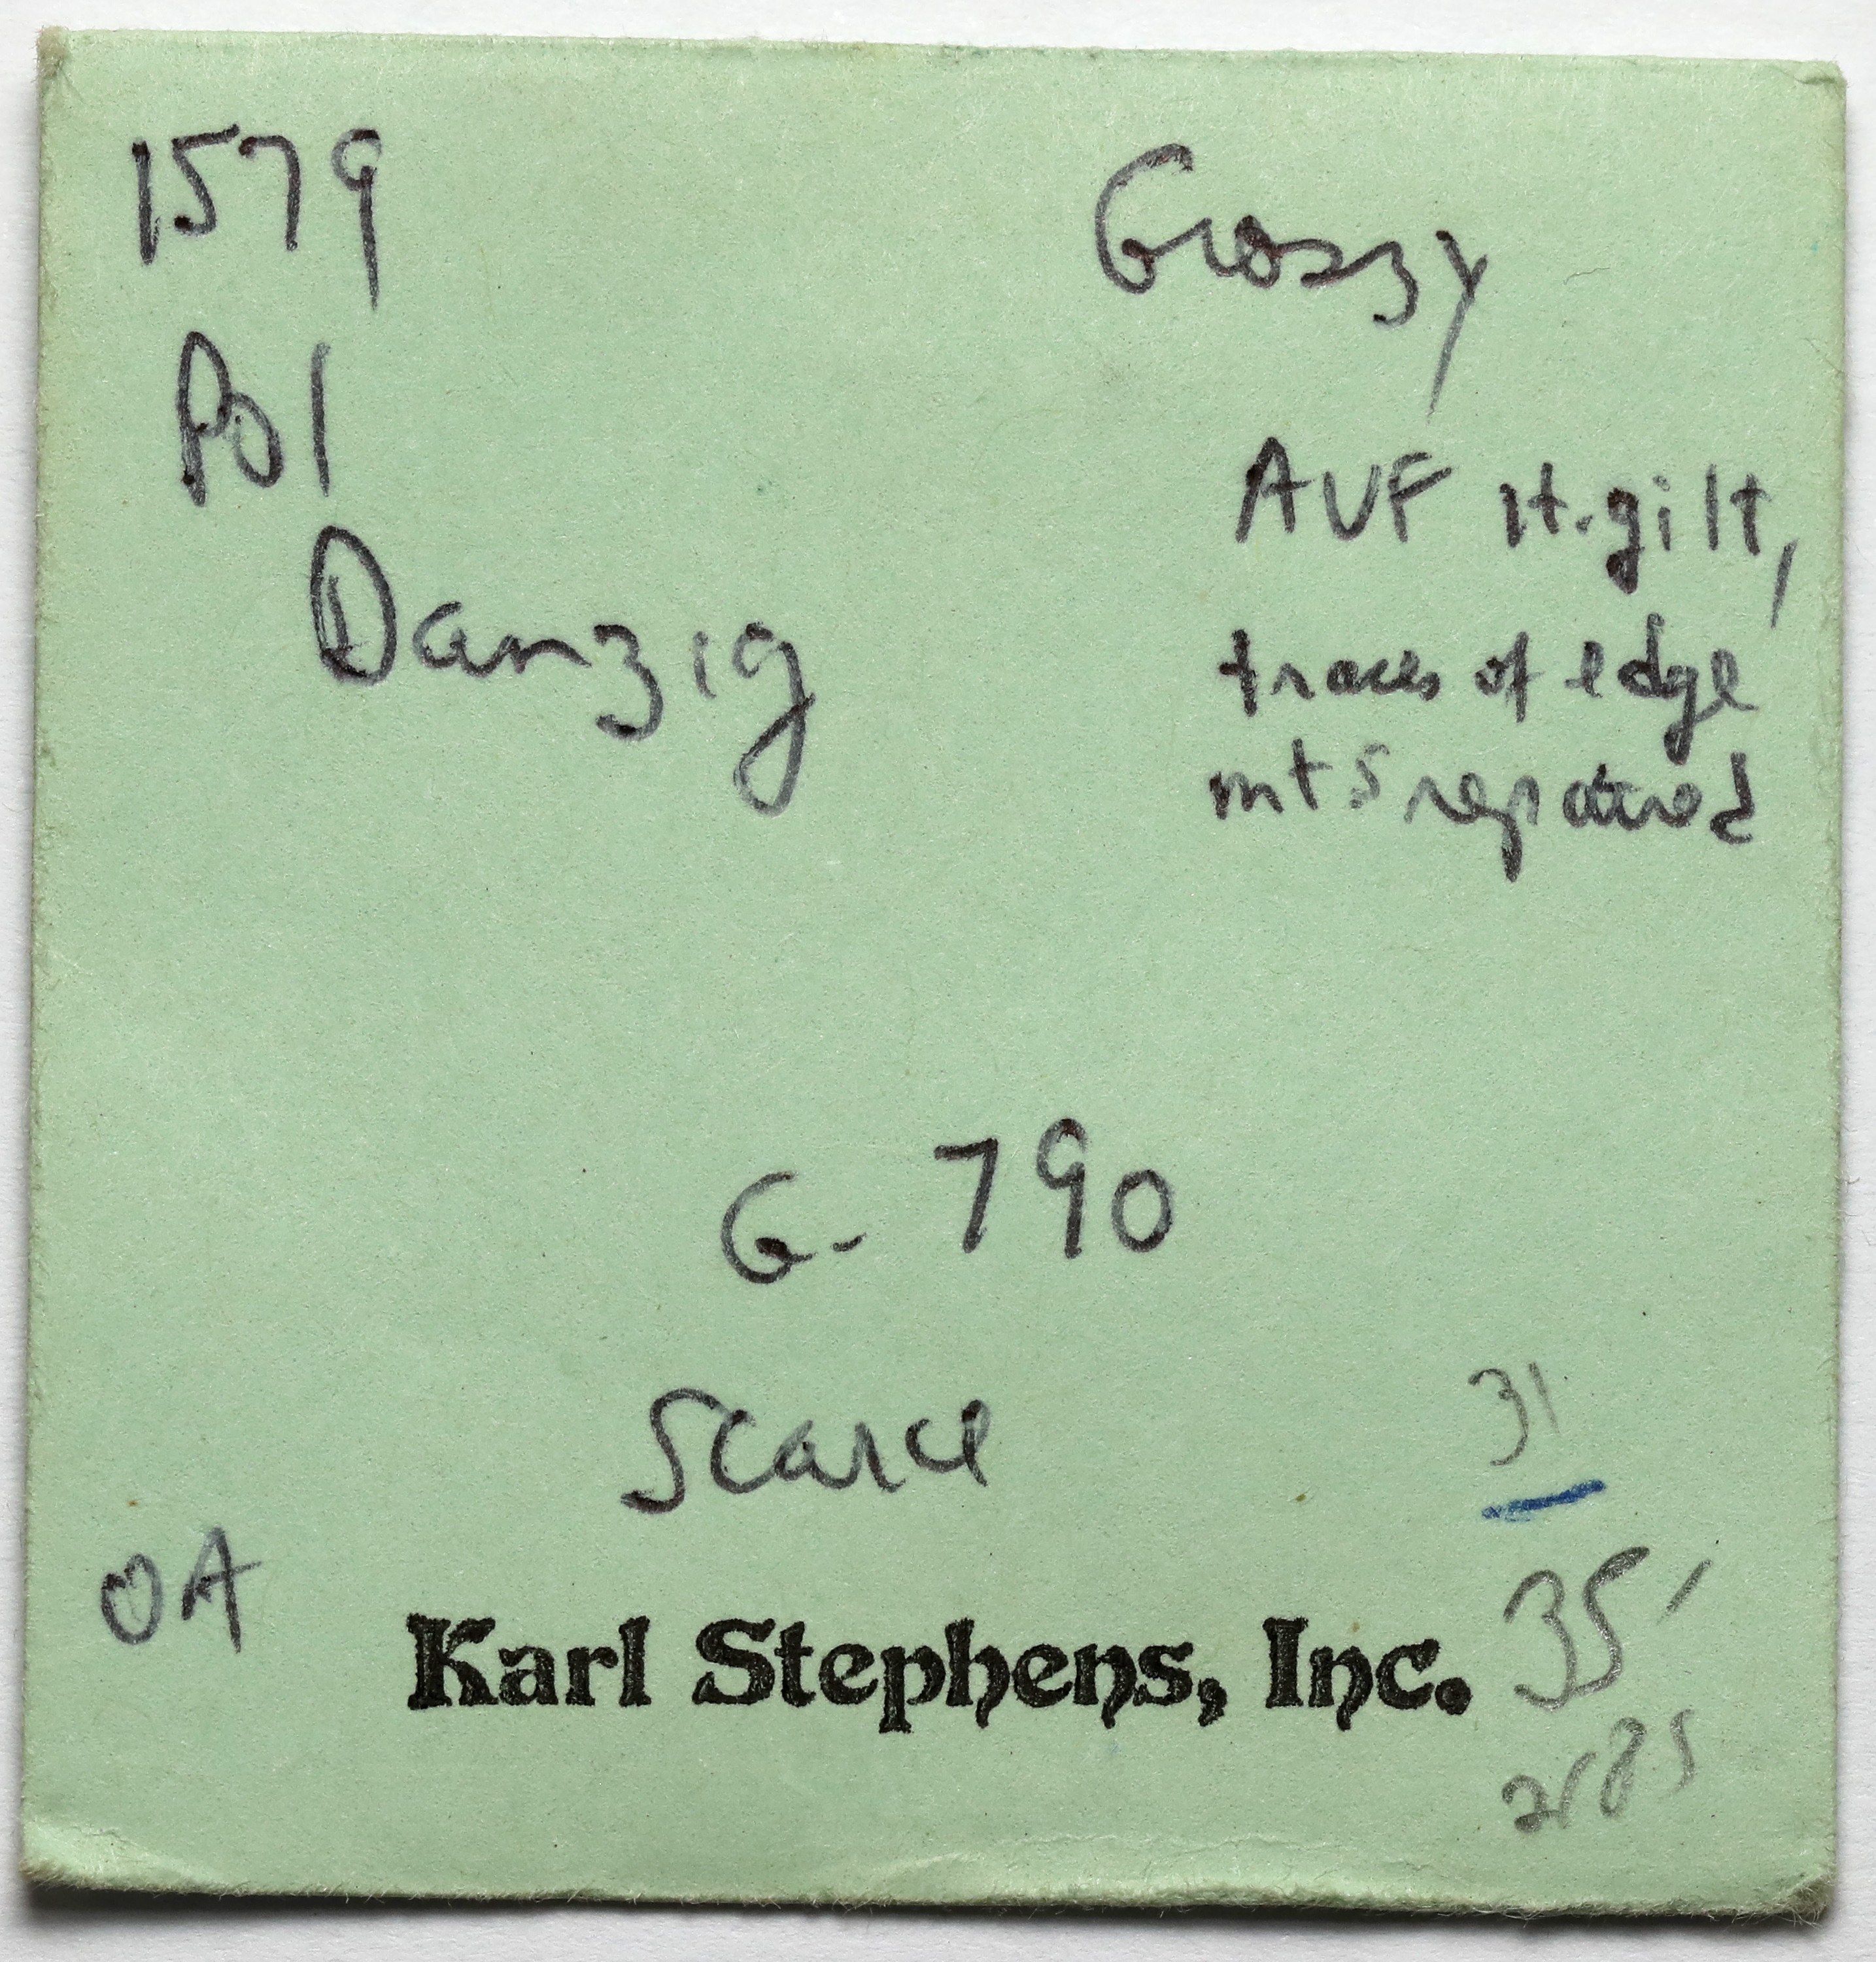 1579
Groszy
Pol
Danzig
AVF lt. gilt,
traces of edge
mts repaired
G-790
Scarce
31
OA
Karl Stephens, Inc.
35